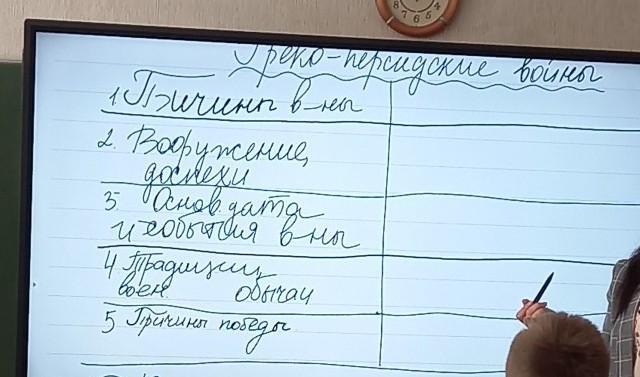 Греко-персидские войны
1. Причины в-ны
2. Вооружение,
доспехи
3. Основ. дата
и события в-ны
4 Традиции,
воен. обычаи
5 Причины победы
8 7 6 5 4